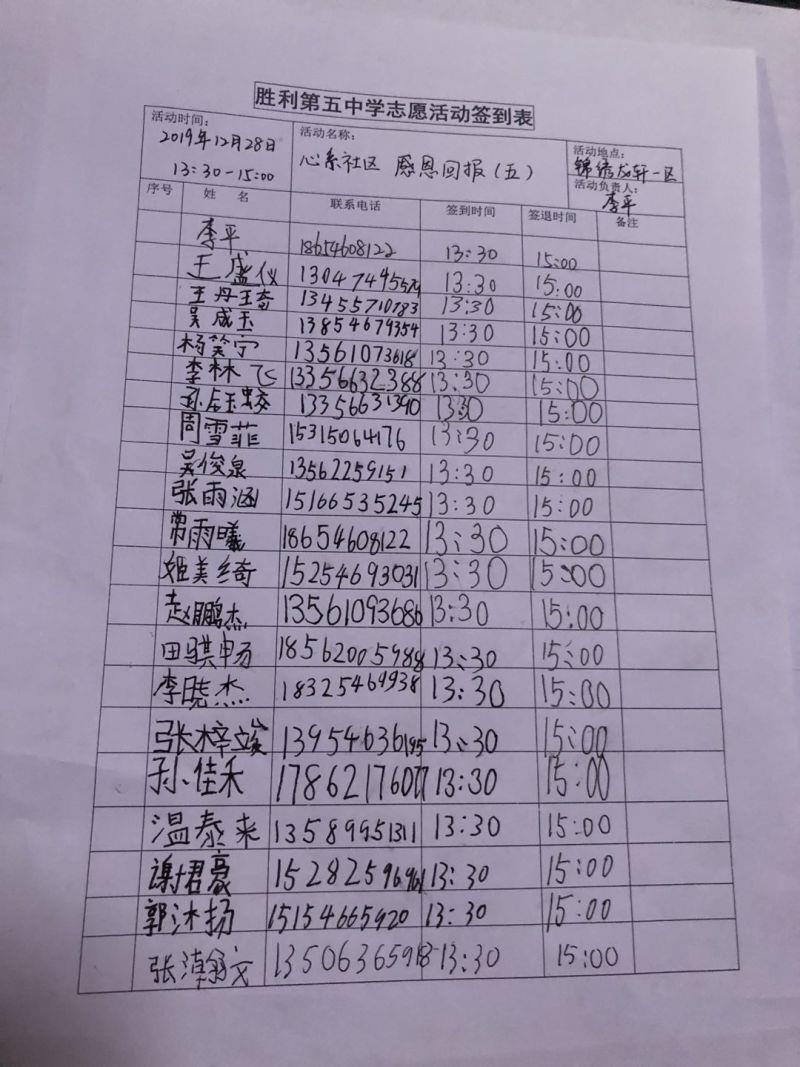 胜利第五中学志愿活动签到表
活动时间： 2019年12月28日 13:30-15:00 活动名称： 心系社区 感恩回报（五） 活动地点： 锦绣龙轩一区
活动负责人： 李平
序号 姓 名 联系电话 签到时间 签退时间 备注
李平 18654608122 13:30 15:00
王盛仪 13:30 15:00
王丹王奇 13455710783 13:30 15:00
吴成玉 13854679354 13:30 15:00
杨笑宁 13561073618 13:30 15:00
李林飞 13356632388 13:30 15:00
13356631390 13:30 15:00
周雪菲 15315064176 13:30 15:00
吴俊泉 13562259151 13:30 15:00
张雨涵 15166535245 13:30 15:00
常雨曦 18654608122 13:30 15:00
姬美绮 15254693031 13:30 15:00
赵鹏杰 13561093686 13:30 15:00
田骐畅 18562005988 13:30 15:00
李晓杰 18325469938 13:30 15:00
张梓竣 13954636195 13:30 15:00
孙佳禾 17862176077 13:30 15:00
温泰来 13589951311 13:30 15:00
谢君豪 13:30 15:00
郭沐扬 15154665920 13:30 15:00
张瀚文 13506365918 13:30 15:00